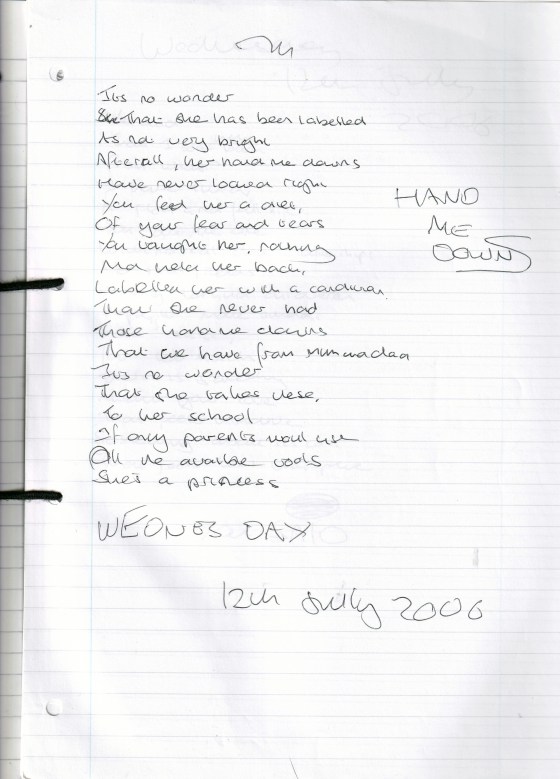 It's no wonder
That she has been labelled
As not very bright
Afterall, her hand me downs
Have never loaned right
You feed her a diet,
Of your fear and tears
You taught her, nothing
And held her back,
Labelled her with a condition
That she never had
Those hand me downs
That we have from mum and dad
It's no wonder
That she takes these,
To her school
If only parents would use
All the availble tools
She's a princess
HAND
ME
DOWNS
WEDNESDAY
12th July 2006